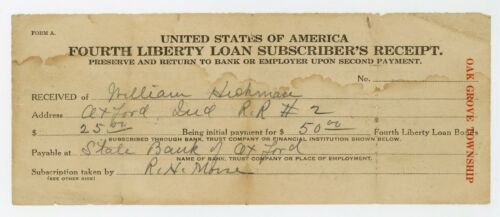 FORM A.
UNITED STATES OF AMERICA
FOURTH LIBERTY LOAN SUBSCRIBER'S RECEIPT.
PRESERVE AND RETURN TO BANK OR EMPLOYER UPON SECOND PAYMENT.
No.
RECEIVED OF William Hickman
Address Oxford, Ind R.R # 2
$ 25.00 Being initial payment for $ 50.00 Fourth Liberty Loan Bonds
SUBSCRIBED THROUGH BANK, TRUST COMPANY OR FINANCIAL INSTITUTION SHOWN BELOW.
Payable at State Bank of Oxford
NAME OF BANK, TRUST COMPANY OR PLACE OF EMPLOYMENT.
Subscription taken by R. H. Morse
(SEE OTHER SIDE)
OAK GROVE TOWNSHIP